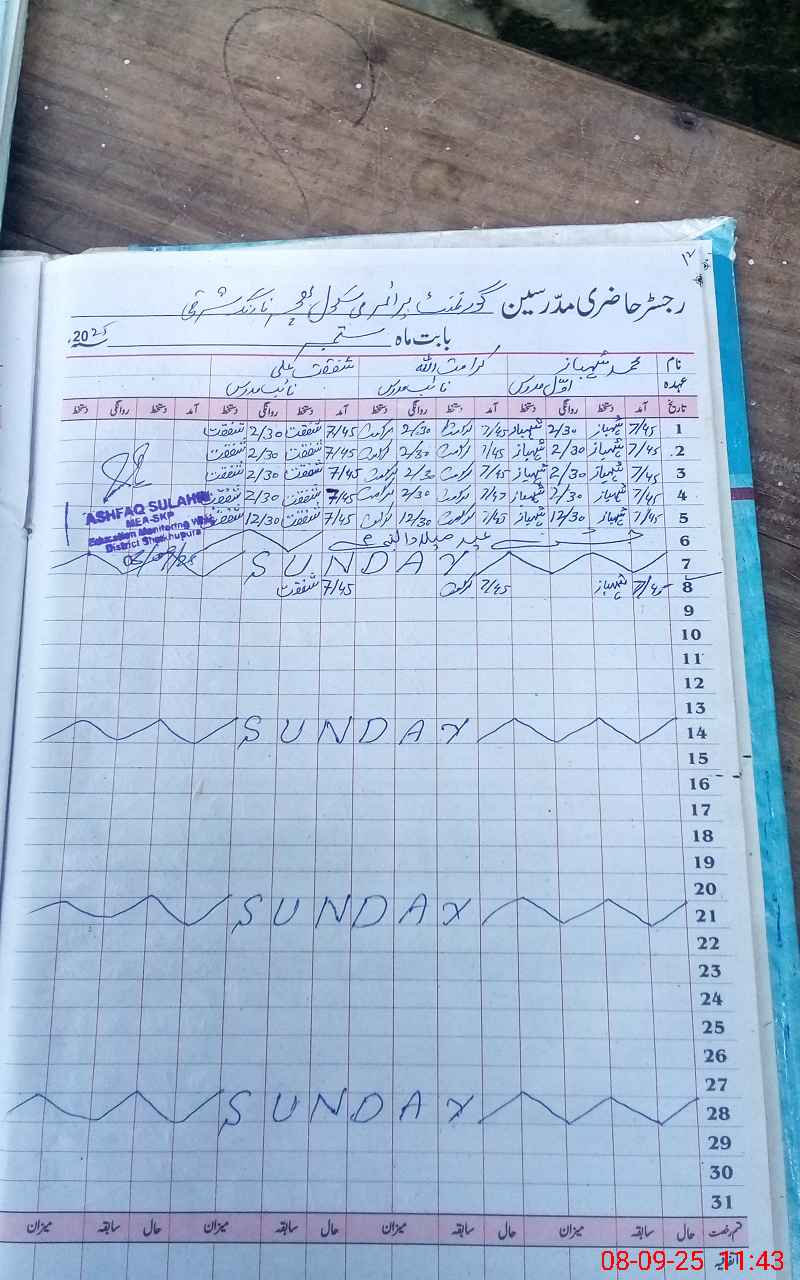 ۱۲
رجسٹر حاضری مدرسین گورنمنٹ پرائمری سکول نارنگ شرقی
بابت ماہ ستمبر سنہ 2025ء
نام محمد شہباز کرامت اللہ شفقت علی
عہدہ اوّل مدرس نائب مدرس نائب مدرس
تاریخ آمد دستخط روانگی دستخط آمد دستخط روانگی دستخط آمد دستخط روانگی دستخط آمد دستخط روانگی دستخط
1 7/45 شہباز 2/30 شہباز 7/45 کرامت 2/30 کرامت 7/45 شفقت 2/30 شفقت
2 7/45 شہباز 2/30 شہباز 7/45 کرامت 2/30 کرامت 7/45 شفقت 2/30 شفقت
3 7/45 شہباز 2/30 شہباز 7/45 کرامت 2/30 کرامت 7/45 شفقت 2/30 شفقت
4 7/45 شہباز 2/30 شہباز 7/45 کرامت 2/30 کرامت 7/45 شفقت 2/30 شفقت
5 7/45 شہباز 12/30 شہباز 7/45 کرامت 12/30 کرامت 7/45 شفقت 12/30 شفقت
ASHFAQ SULAHRI
MEA-SKP
Education Monitoring Wing
District Sheikhupura
05/09/25
6 جشن عید میلاد النبی
7 SUNDAY
8 7/45 شہباز 7/45 کرامت 7/45 شفقت
9
10
11
12
13
14 SUNDAY
15
16
17
18
19
20
21 SUNDAY
22
23
24
25
26
27
28 SUNDAY
29
30
31
قسم رخصت حال سابقہ میزان حال سابقہ میزان حال سابقہ میزان حال سابقہ میزان
اتفاقیہ
08-09-25 11:43